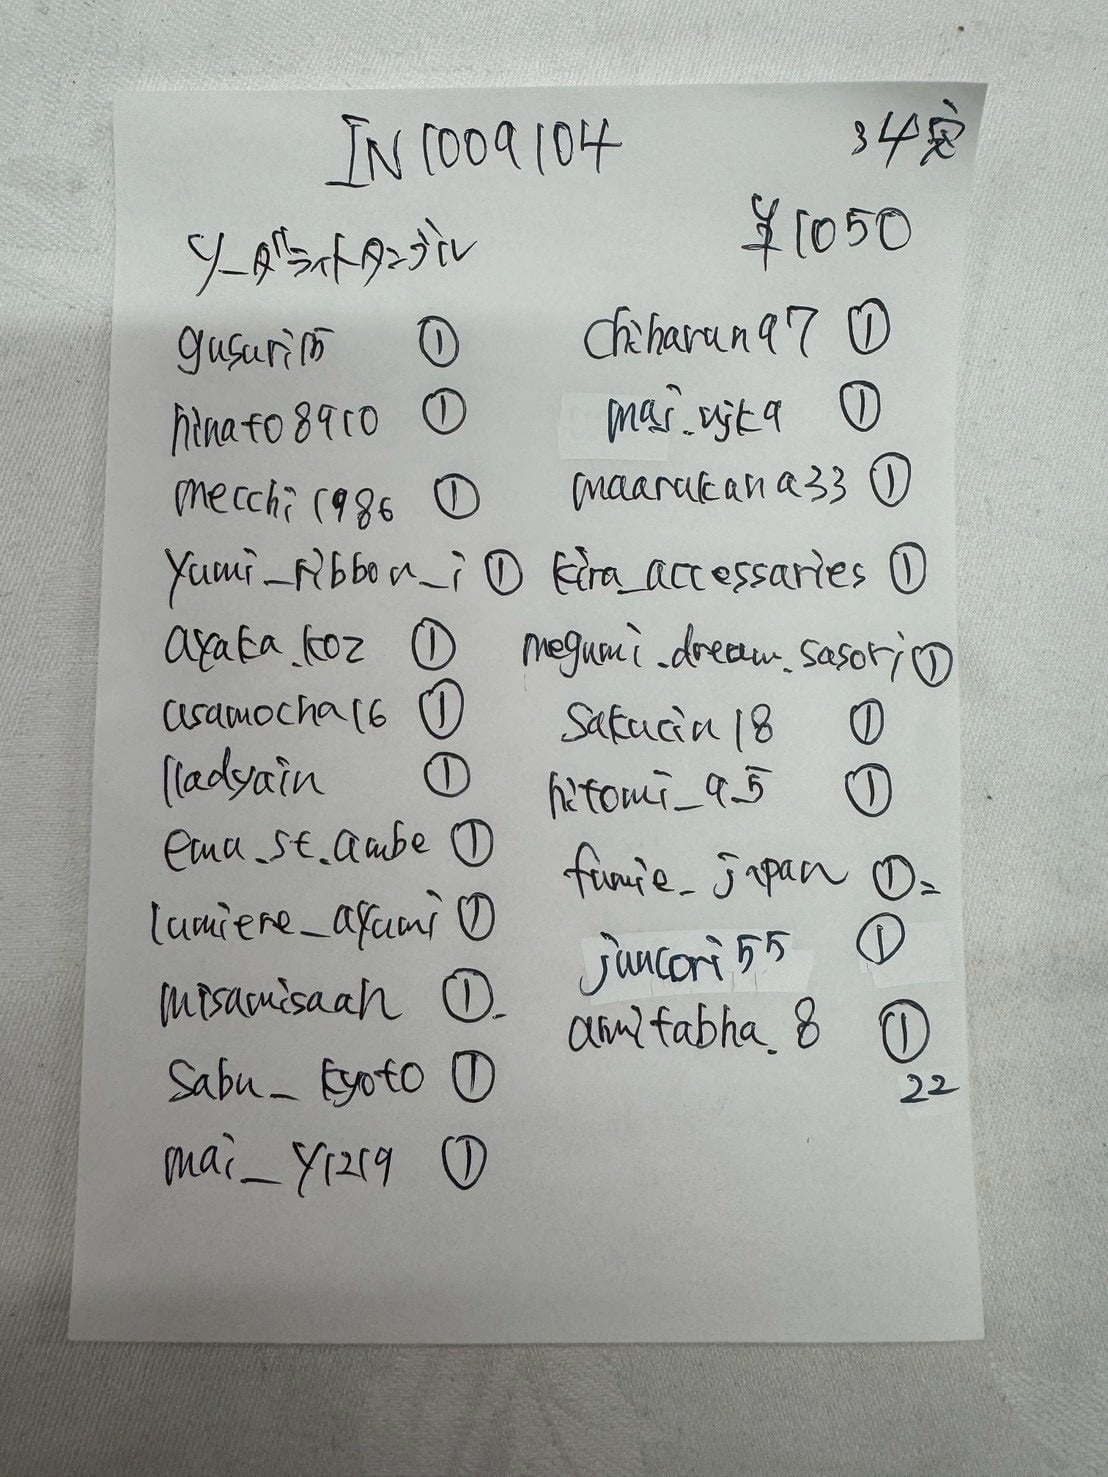 IN1009104
34定
¥1050
ソーダライトタンブル
gusuri15 ①
hinato8910 ①
mecchi1986 ①
yumi_ribbon_i ①
ayaka.koz ①
asamocha16 ①
lladyain ①
ema.st.ambe ①
lumiere_ayumi ①
misamisaah ①
sabu_kyoto ①
mai_y1219 ①
chiharun97 ①
mai.ujk9 ①
maarukana33 ①
kira_accessaries ①
megumi.dream.sasori ①
sakucin18 ①
hitomi_95 ①
fumie_japan ①
juncori55 ①
amitabha.8 ①
22